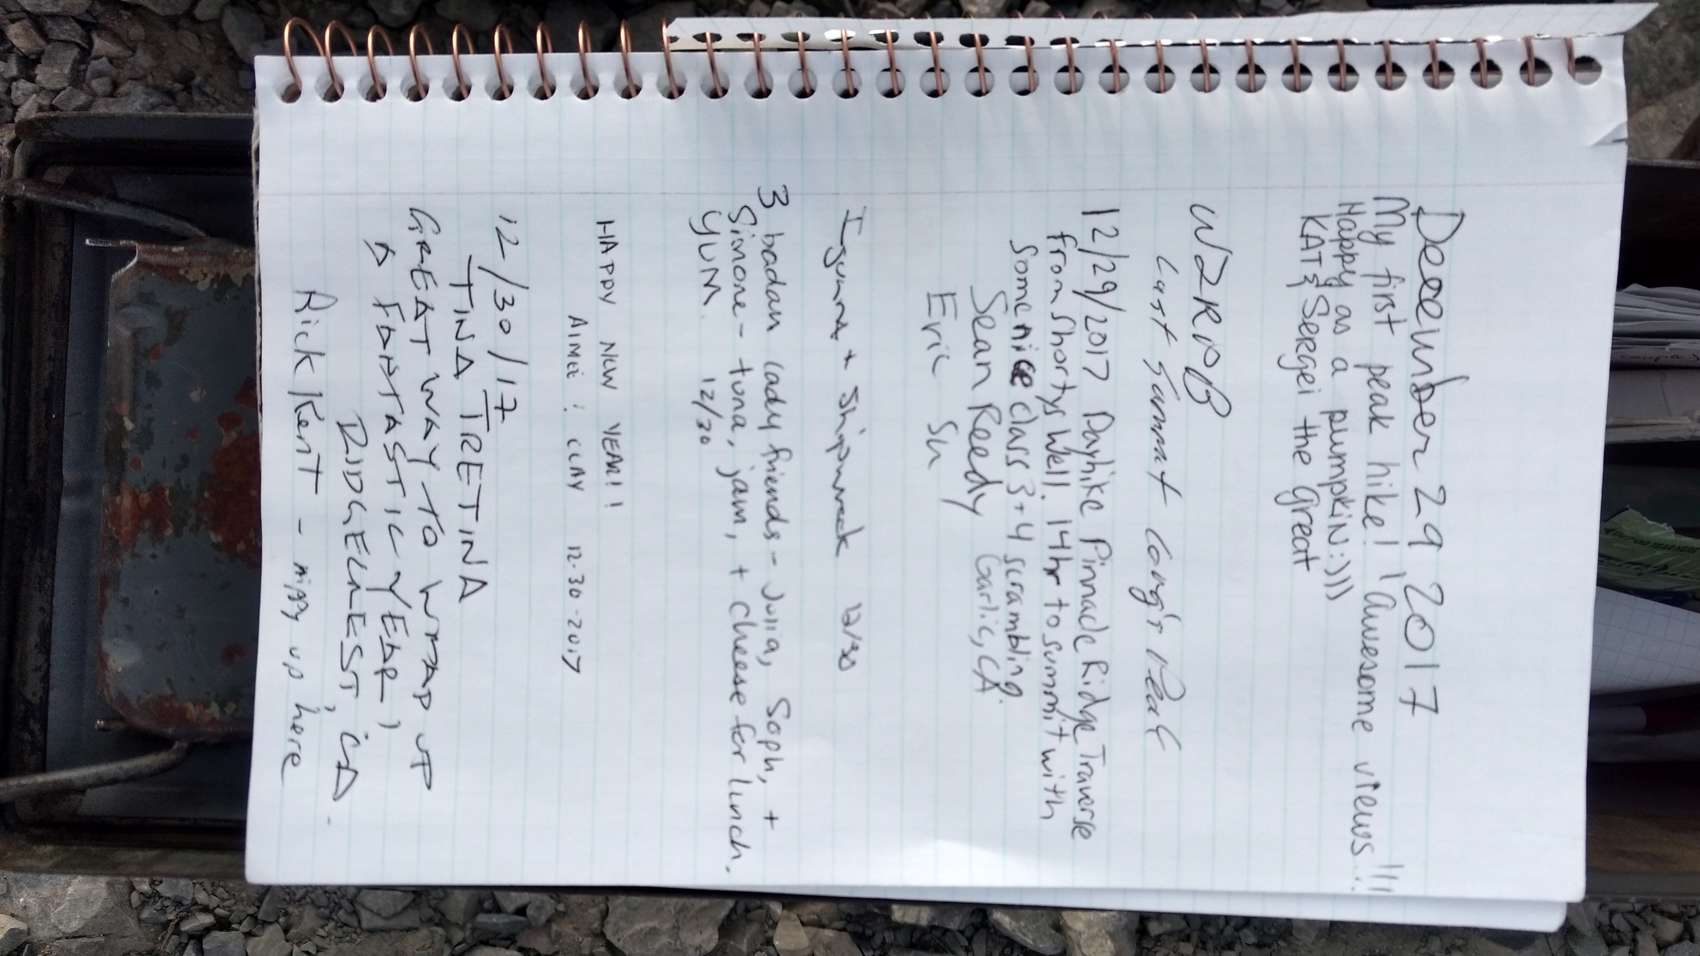 December 29 2017
My first peak hike! Awesome views!!!
Happy as a pumpkin:)))
KAT & Sergei the Great
W2RPB
Last Summit Cong's Peak
12/29/2017 Dayhike Pinnacle Ridge Traverse
from Shortys Well. 14hr to summit with
some nice class 3+4 scrambling.
Sean Reedy Garlic, CA
Eric Su
Iguana + Shipwreck 12/30
3 badan lady friends - Julia, Soph, +
Simone - tuna, jam, + cheese for lunch.
YUM. 12/30
HAPPY NEW YEAR!!
AIMEE : CLAY 12-30-2017
12/30/17
TINA TRETINA
GREAT WAY TO WRAP UP
A FANTASTIC YEAR,
RIDGECREST, CA.
Rick Kent - nippy up here